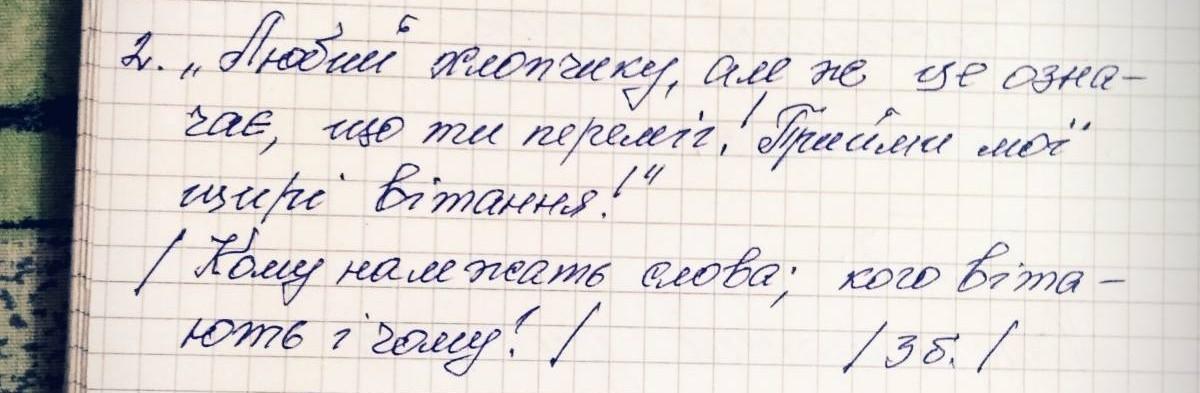 2. „Любий хлопчику, але же це озна-
чає, що ти переміг! Прийми мої
щирі вітання!"
/ Кому належать слова; кого віта-
ють і чому? / / 3 б. /